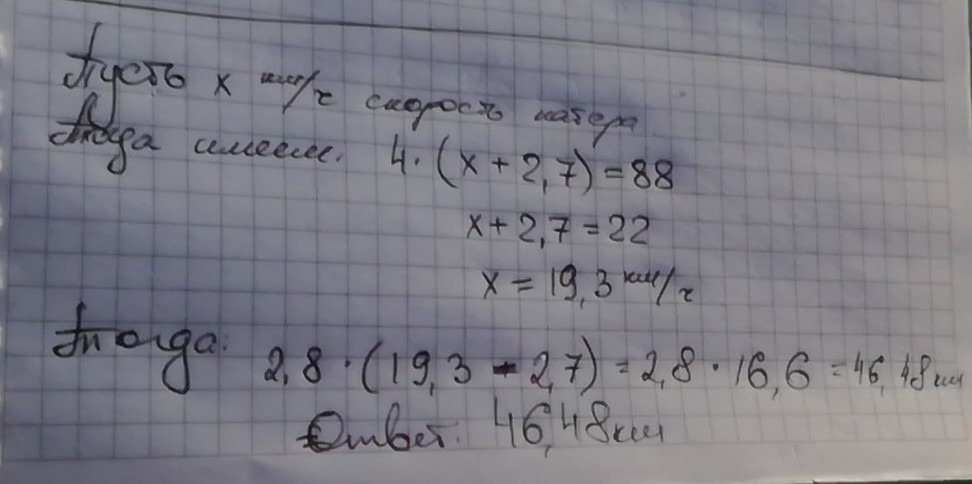 Пусть x км/ч скорость катера
Тогда имеем. 4·(x+2,7)=88
x+2,7=22
x=19,3 км/ч
Тогда: 2,8·(19,3-2,7)=2,8·16,6=46,48км
Ответ. 46,48км